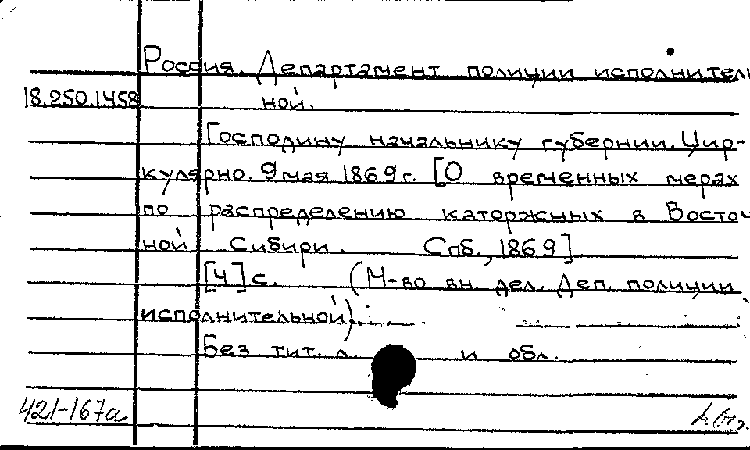 Россия. Департамент полиции исполнитель
18.250.1458 ной.
Господину начальнику губернии. Цир-
кулярно. 9 мая 1869 г. [О временных мерах
по распределению каторжных в Восточ
ной Сибири. Спб., 1869]
[4] с. (М-во вн. дел. Деп. полиции
исполнительной).
Без тит. л. и обл.
421-167а